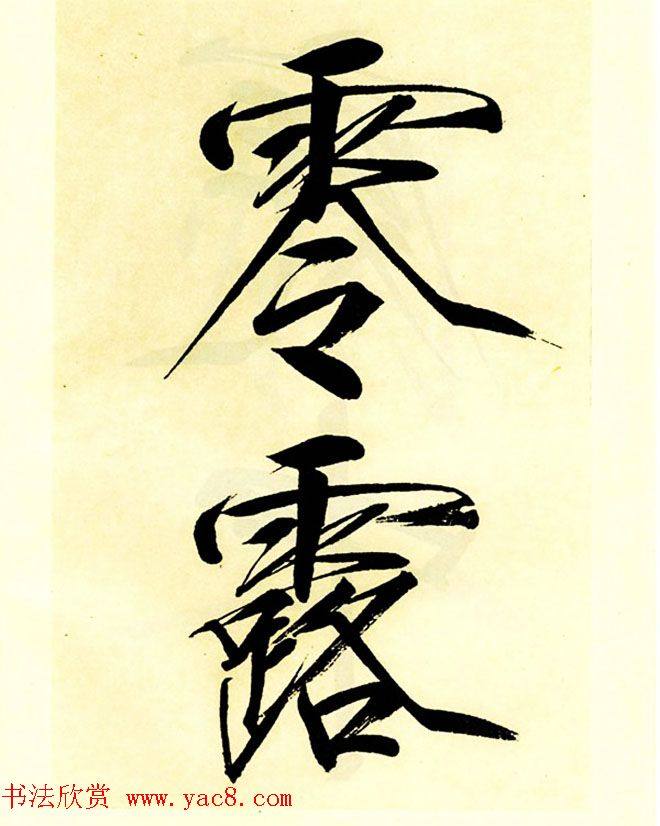 零
露
书法欣赏 www.yac8.com